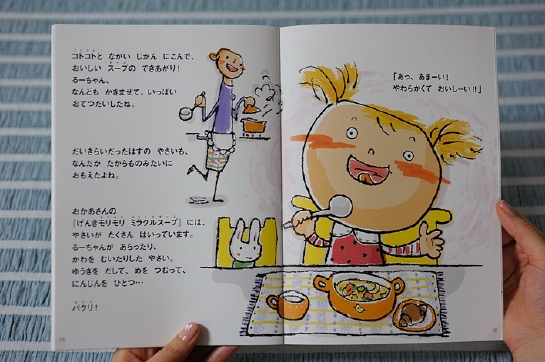 コトコトと ながい じかん にこんで、
おいしい スープの できあがり!
るーちゃん、
なんども かきまぜて、いっぱい
おてつだいしたね。
だいきらいだったはずの やさいも、
なんだか たからものみたいに
おもえたよね。
おかあさんの
『げんきモリモリ ミラクルスープ』には、
やさいが たくさん はいっています。
るーちゃんが あらったり、
かわを むいたりした やさい。
ゆうきを だして、めを つむって、
にんじんを ひとつ…
パクリ!
「あっ、あまーい!
やわらかくて おいしーい!!」